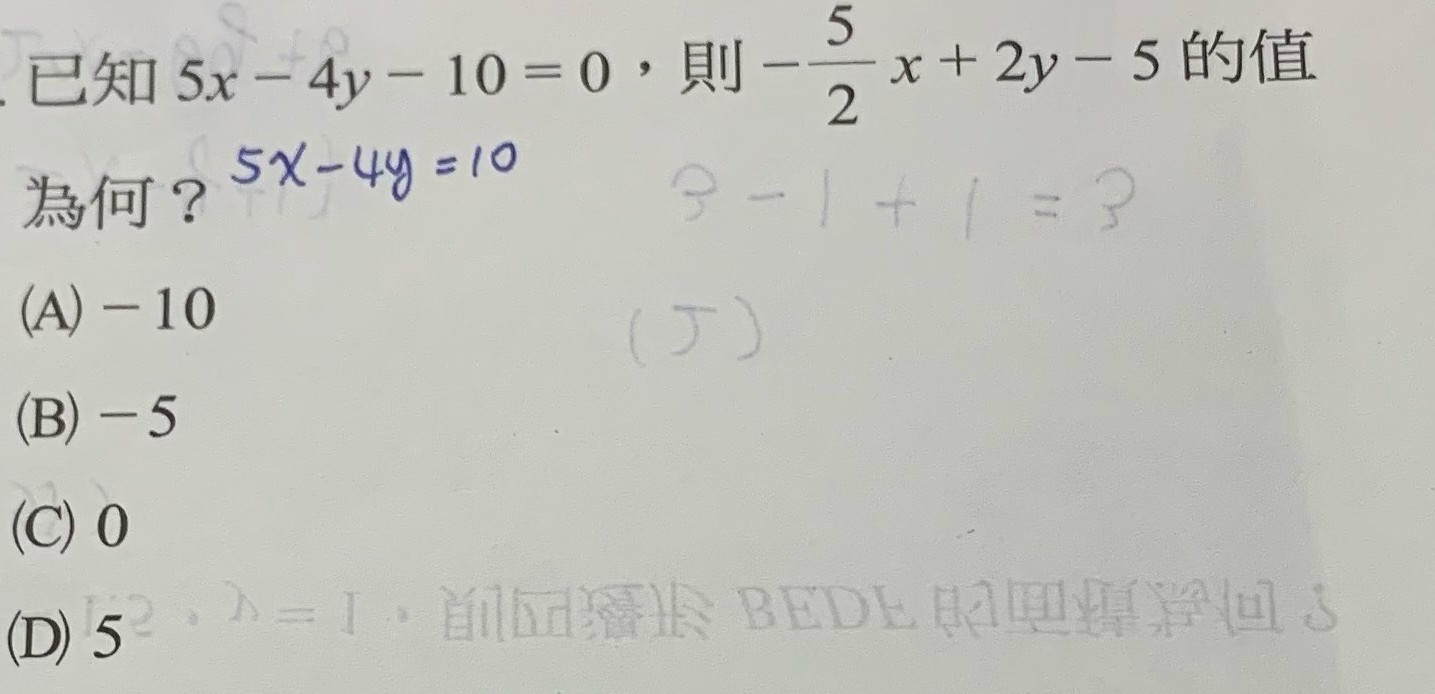 已知 5x − 4y − 10 = 0,則 −5/2 x + 2y − 5 的值
為何? 5x−4y=10
(A) −10
(B) −5
(C) 0
(D) 5